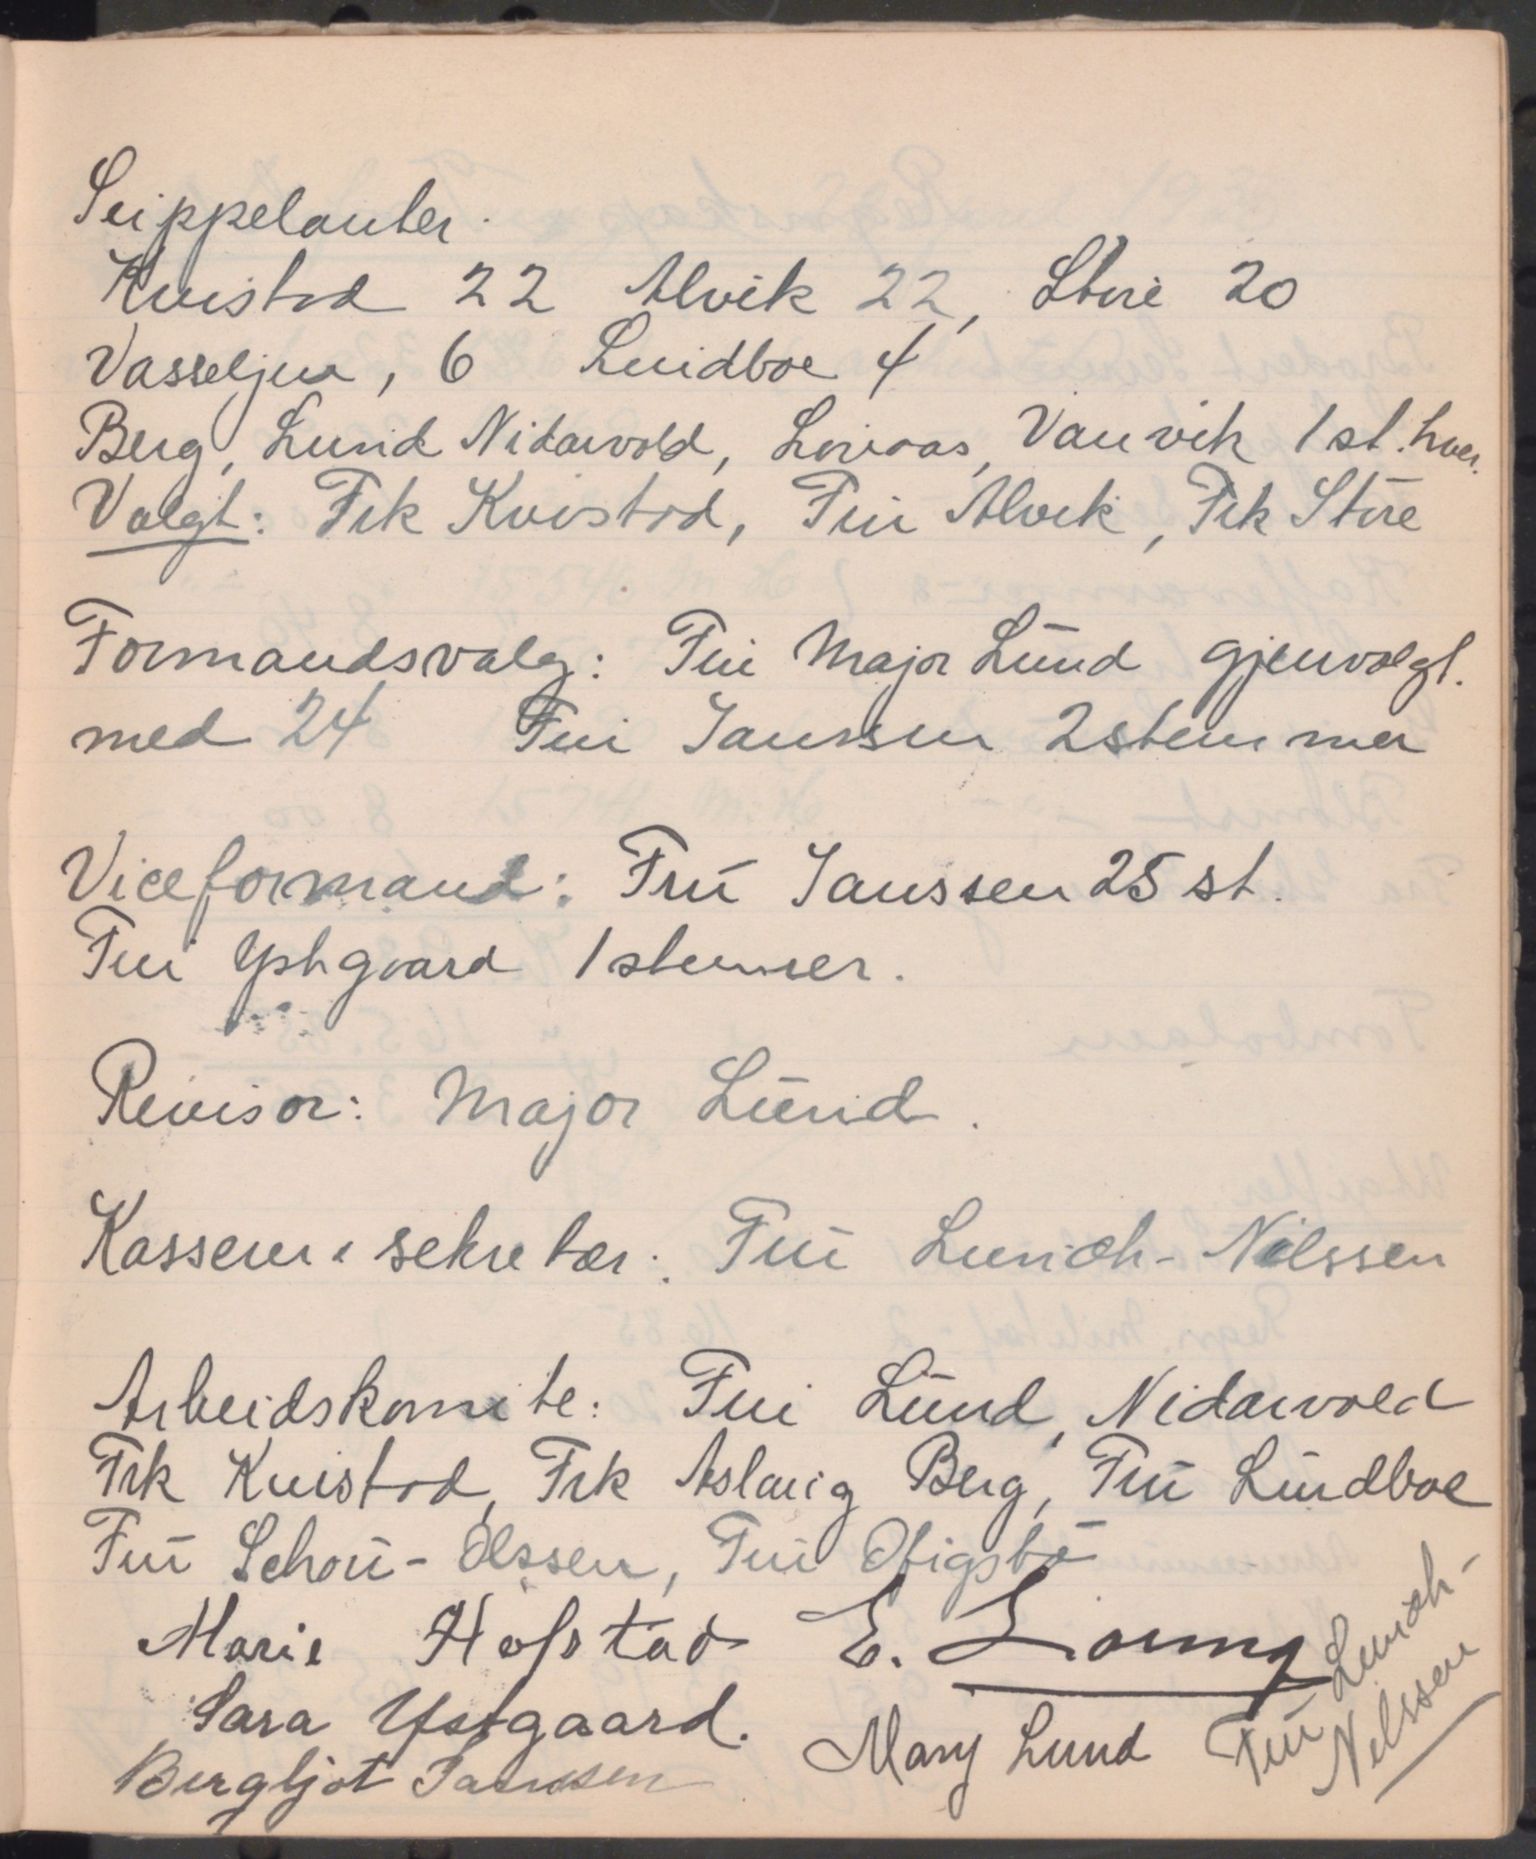 Suppelanter.
Kvistad 22 Alvik 22, Støre 20
Vasseljen, 6 Lundboe 4
Berg, Lund Nidarvold, Lovaas, Vanvik 1 st. hver.
Valgt: Frk Kvistad, Fru Alvik, Frk Støre
Formandsvalg: Fru Major Lund gjenvalgt.
med 24 Fru Janssen 2 stemmer
Viceformand: Frú Janssen 25 st.
Fru Ystgaard 1 stemmer.
Revisor: Major Lund.
Kasserer & sekretær: Fru Lunich-Nilssen
Arbeidskomite: Fru Lund, Nidarvold
Frk Kvistad, Frk Aslaug Berg, Fru Lundboe
Fru Schou-Olssen, Fru Ofigsbø
Marie Hofstad E. Loung
Sara Ystgaard. Mary Lund Fru Lunich-
Nilssen
Bergljot Janssen